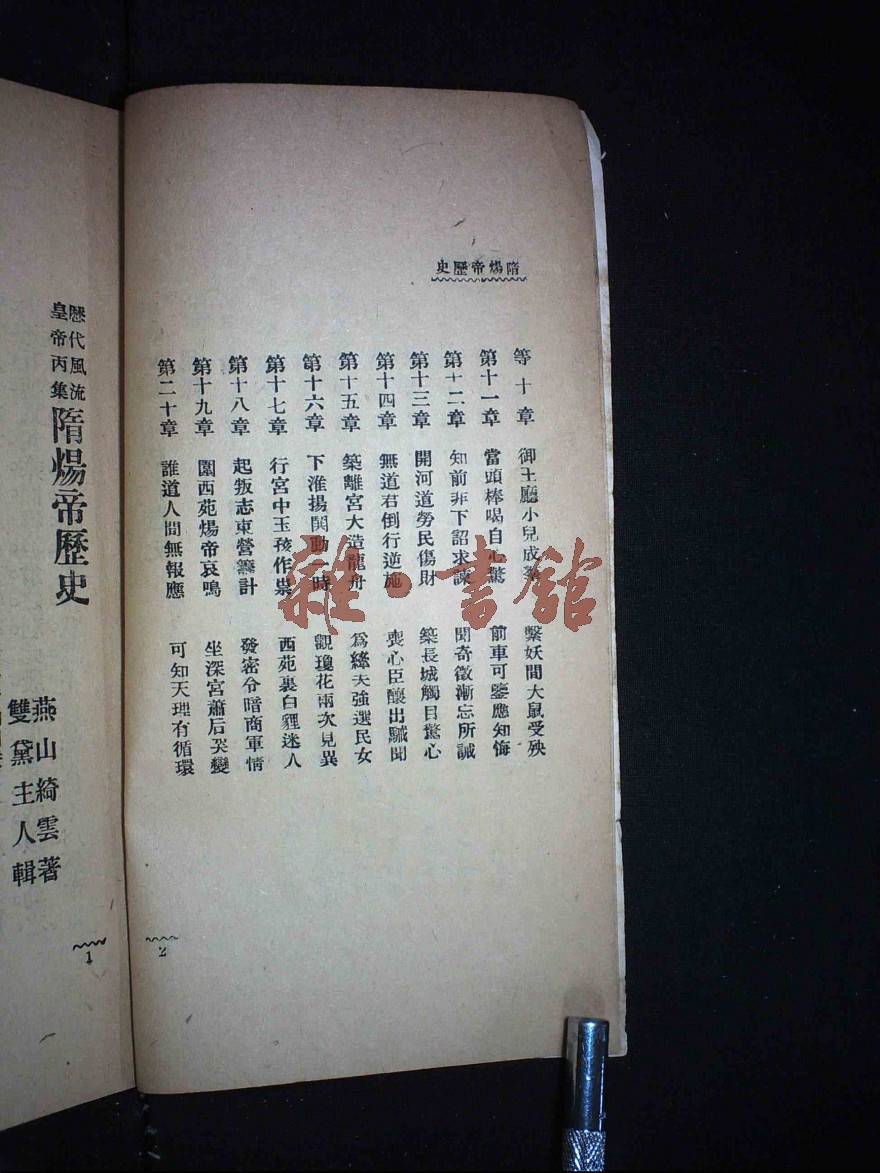 隋煬帝歷史
等十章 御土廳小兒成 繫妖間大鼠受殃
第十一章 當頭棒喝自心驚 前車可鑒應知悔
第十二章 知前非下詔求諫 聞奇徵漸忘所誡
第十三章 開河道勞民傷財 築長城觸目驚心
第十四章 無道君倒行逆施 喪心臣釀出醜聞
第十五章 築離宮大造龍舟 爲縴夫強選民女
第十六章 下淮揚鬨動一時 觀瓊花兩次見異
第十七章 行宮中玉孩作祟 西苑裏白貍迷人
第十八章 起叛志東營籌計 發密令暗商軍情
第十九章 圍西苑煬帝哀鳴 坐深宮蕭后哭變
第二十章 誰道人間無報應 可知天理有循環
2
歷代風流
皇帝丙集
隋煬帝歷史
燕山綺雲著
雙黛主人輯
1
雜·書館